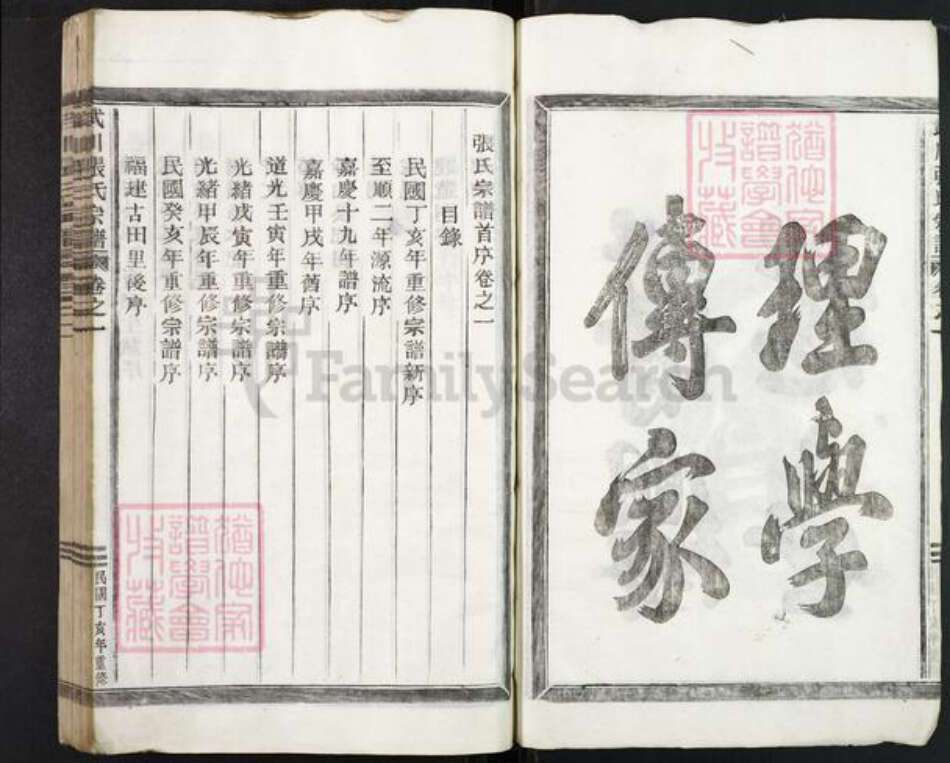 理學
傳家
張氏宗譜首序卷之一
目錄
民國丁亥年重修宗譜新序
至順二年源流序
嘉慶十九年譜序
嘉慶甲戌年舊序
道光壬寅年重修宗譜序
光緒戊寅年重修宗譜序
光緒甲辰年重修宗譜序
民國癸亥年重修宗譜序
福建古田里後序
武川張氏宗譜 卷之一
民國丁亥年重修
譜學會
收藏
譜學會
收藏
FamilySearch